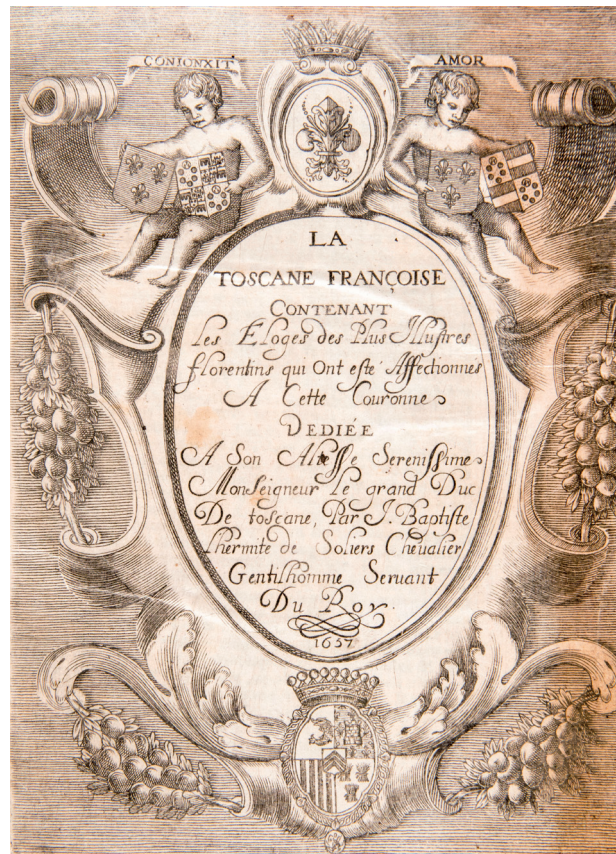 CONIONXIT
AMOR
LA
TOSCANE FRANÇOISE
CONTENANT
Les Eloges des Plus Illustres
florentins qui Ont esté Affectionnes
A Cette Couronne
DEDIÉE
A Son Altesse Serenissime
Monseigneur Le grand Duc
De toscane, Par J. Baptiste
l'hermite de Soliers Cheualier
Gentilhomme Seruant
Du Roy.
1657